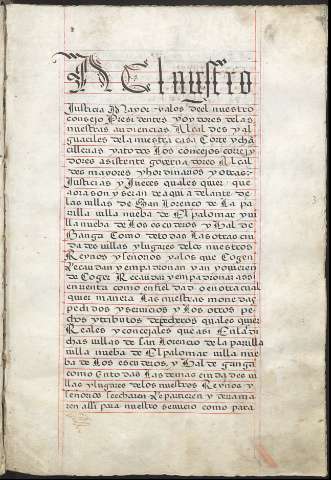 A El nuestro
Justicia Mayor yalos deel nuestro
consejo Presidentes yoydores delas
nuestras audiencias Alcaldes yal
guaciles dela nuestra casa Corte ychan
cillerias yatodos los concejos correxi
dores asistente governadores Alcal
des mayores yhordinarios y otras
Justicias y Jueces quales quier que
aora son y seran de aqui adelante de
las villas de San Lorenco de la pa
rilla villa nueba de El palomar y vi
lla nueba de los escuderos y Hal de
Ganga Como de todas las otras ciu
dades villas ylugares delos nuestros
Reynos y señorios yalos que Cogen
Recaudan y empadronan yan y ouieren
de Coger Recaudar y empadronar asi
en renta como en fieldad o en otra cual
quier manera las nuestras monedas
pedidos yservicios y los otros pe
chos ytributos depecheros quales quier
Reales y concejales que asi En las di
chas villas de San Lorencio de la parilla
villa nueba de El palomar villa nue
ba de los escuderos, y Hal de ganga
como En todas las demas ciudades vi
llas ylugares de los nuestros Reynos y
señorios se echaren Repartieren y derrama
ren assi para nuestro servicio como para